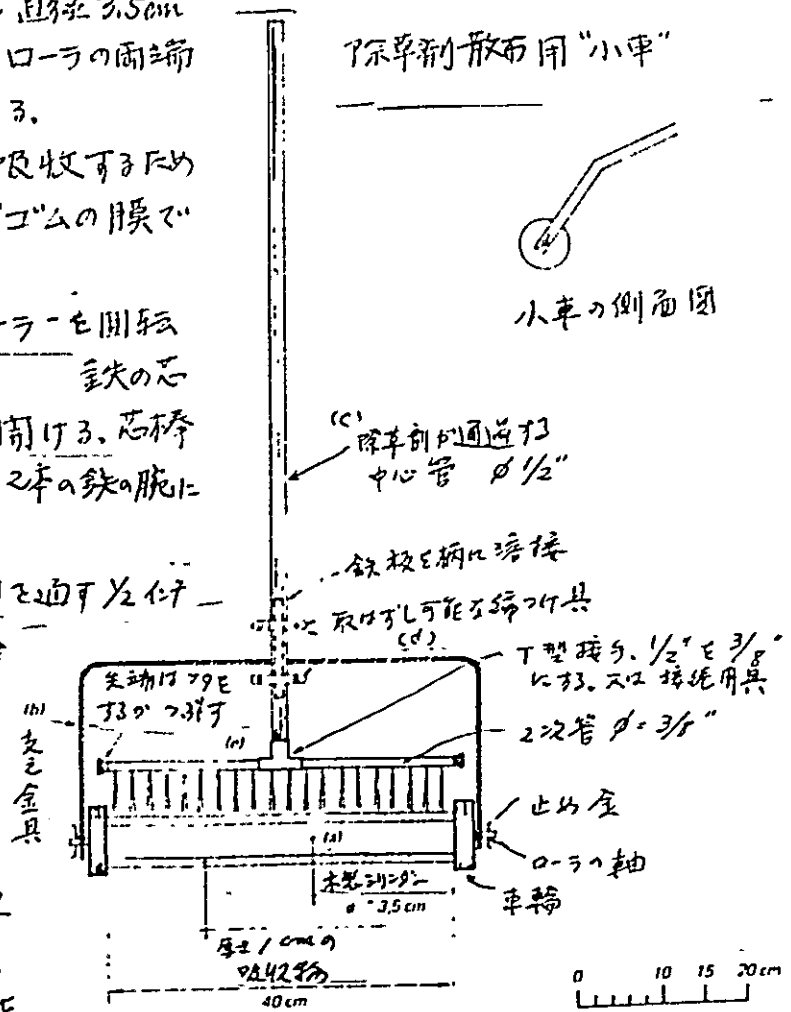 直径 3.5cm
ローラの両端
る。
吸收するため
ゴムの膜で
ラーを回転
鉄の芯
開ける。芯棒
2本の鉄の腕に
を通す 1/2 インチ
除草剤散布用"小車"
小車の側面図
(c)
除草剤が通過する
中心管 φ 1/2"
鉄板を柄に溶接
取はずし可能な締つけ具
(d)
T型接手、1/2" を 3/8"
にする。又は 接続用具
2次管 φ = 3/8"
先端は フタを
するか つぶす
(b)
支え金具
(a)
止め金
ローラの軸
車輪
木製シリンダー
φ 3,5cm
厚さ 1cmの
吸収物
40cm
0 10 15 20cm